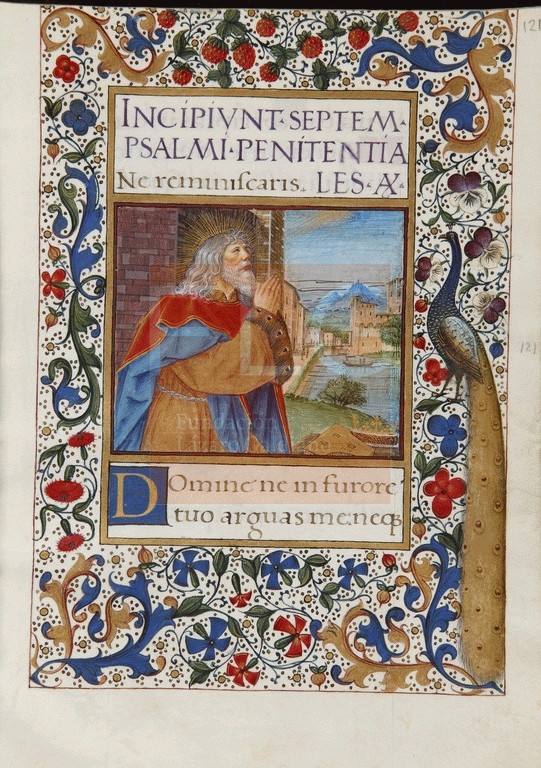 121
INCIPIVNT·SEPTEM·
PSALMI·PENITENTIA
Ne reminiscaris. LES·
Domine ne in furore
tuo arguas me: neq
121
Fundación